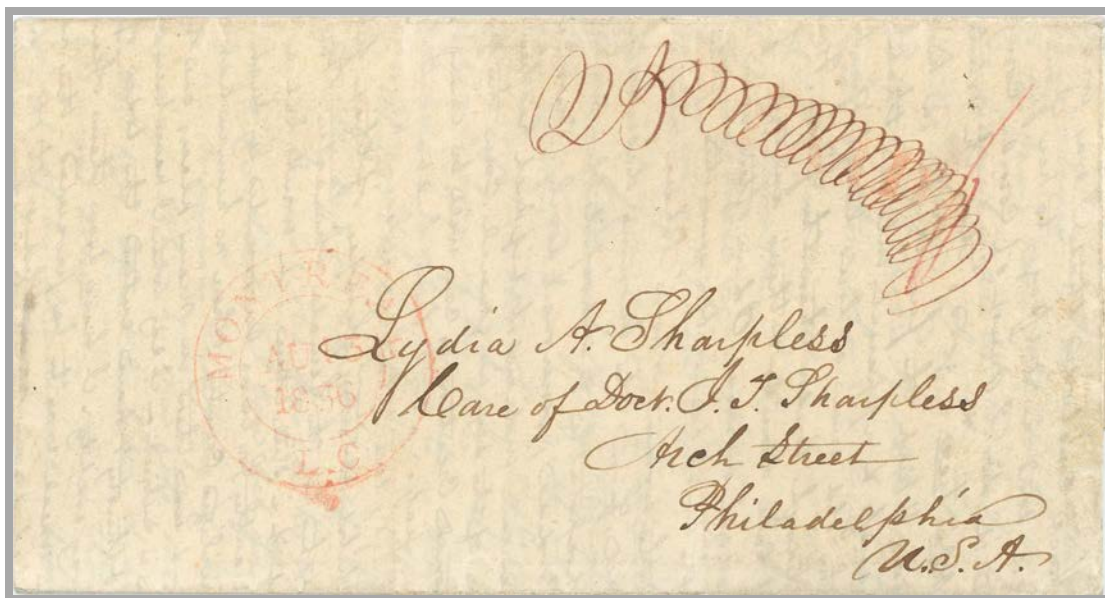 MONTREAL
AU
1836
L.C
Lydia A. Sharpless
Care of Doct. J. T. Sharpless
Arch Street
Philadelphia
U.S.A.